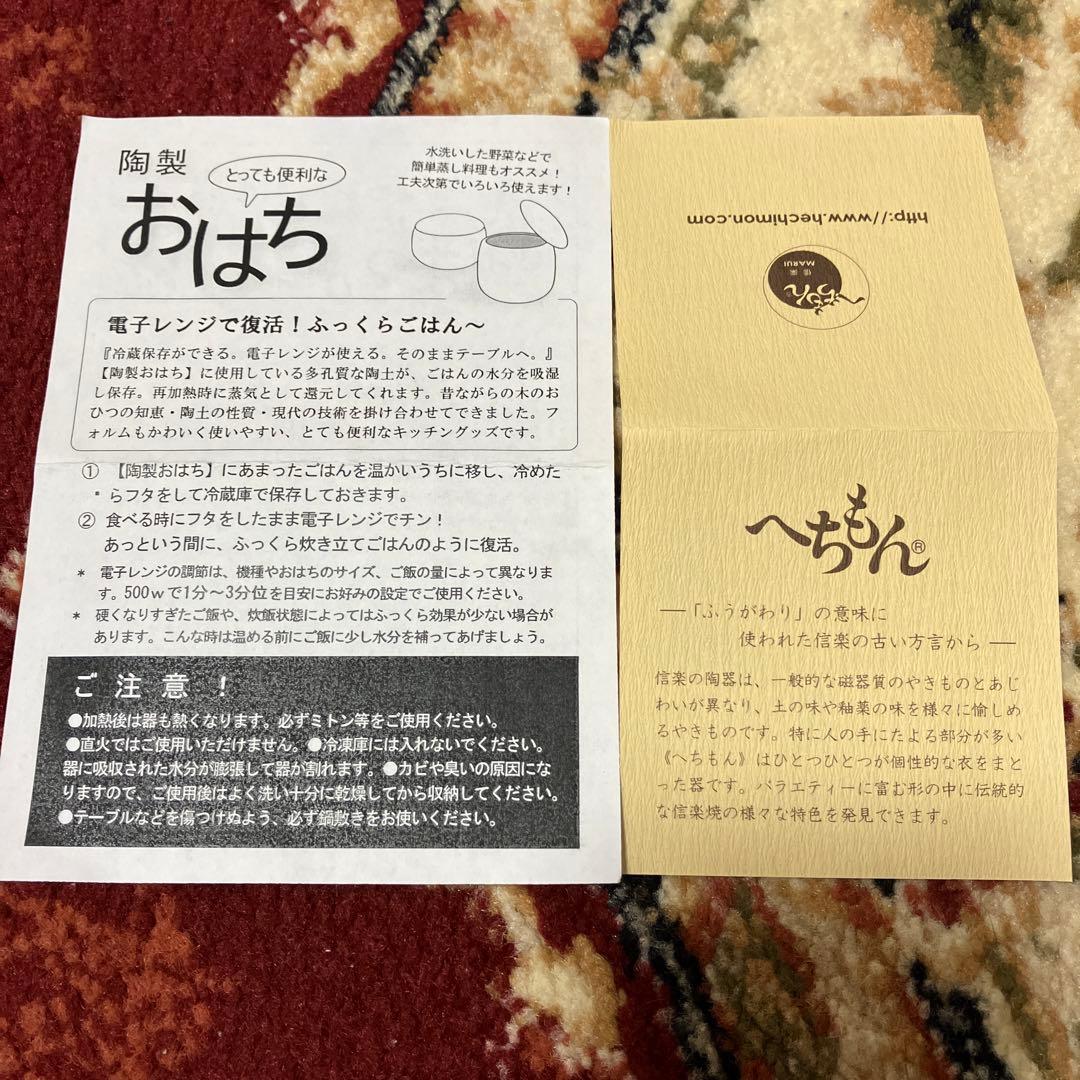 陶製
とっても便利な
おはち
水洗いした野菜などで
簡単蒸し料理もオススメ！
工夫次第でいろいろ使えます！
電子レンジで復活！ふっくらごはん～
『冷蔵保存ができる。電子レンジが使える。そのままテーブルへ。』
【陶製おはち】に使用している多孔質な陶土が、ごはんの水分を吸湿
し保存。再加熱時に蒸気として還元してくれます。昔ながらの木のお
ひつの知恵・陶土の性質・現代の技術を掛け合わせてできました。フ
ォルムもかわいく使いやすい、とても便利なキッチングッズです。
① 【陶製おはち】にあまったごはんを温かいうちに移し、冷めた
らフタをして冷蔵庫で保存しておきます。
② 食べる時にフタをしたまま電子レンジでチン！
あっという間に、ふっくら炊き立てごはんのように復活。
* 電子レンジの調節は、機種やおはちのサイズ、ご飯の量によって異なりま
す。500ｗで1分～3分位を目安にお好みの設定でご使用ください。
* 硬くなりすぎたご飯や、炊飯状態によってはふっくら効果が少ない場合が
あります。こんな時は温める前にご飯に少し水分を補ってあげましょう。
ご注意！
●加熱後は器も熱くなります。必ずミトン等をご使用ください。
●直火ではご使用いただけません。●冷凍庫には入れないでください。
器に吸収された水分が膨張して器が割れます。●カビや臭いの原因にな
りますので、ご使用後はよく洗い十分に乾燥してから収納してください。
●テーブルなどを傷つけぬよう、必ず鍋敷きをお使いください。
http://www.hechimon.com
信楽
MARUI
へちもん®
へちもん®
―「ふうがわり」の意味に
使われた信楽の古い方言から―
信楽の陶器は、一般的な磁器質のやきものとあじ
わいが異なり、土の味や釉薬の味を様々に愉しめ
るやきものです。特に人の手にたよる部分が多い
《へちもん》はひとつひとつが個性的な衣をまと
った器です。バラエティーに富む形の中に伝統的
な信楽焼の様々な特色を発見できます。